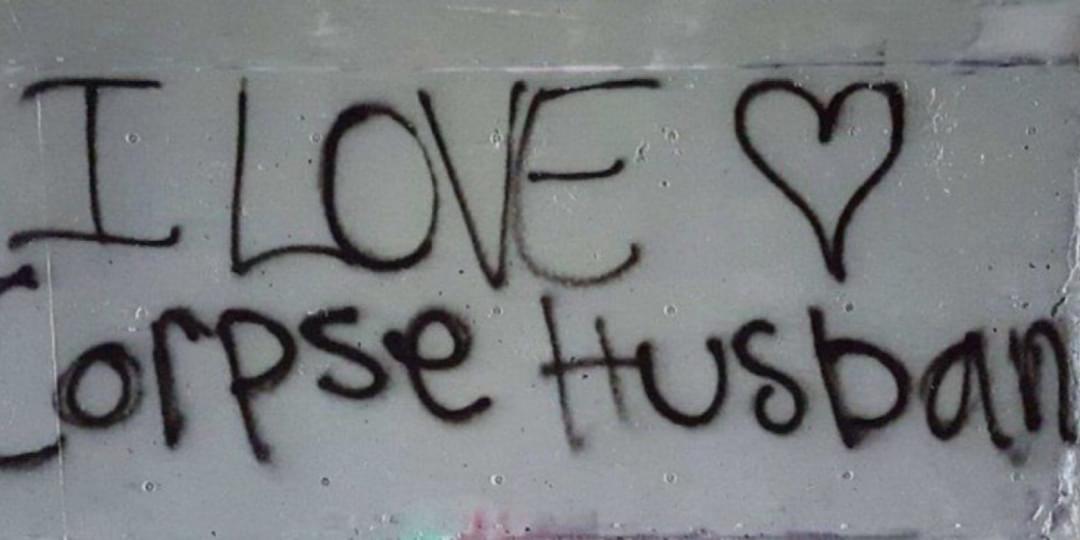 I LOVE ♡
Corpse Husban